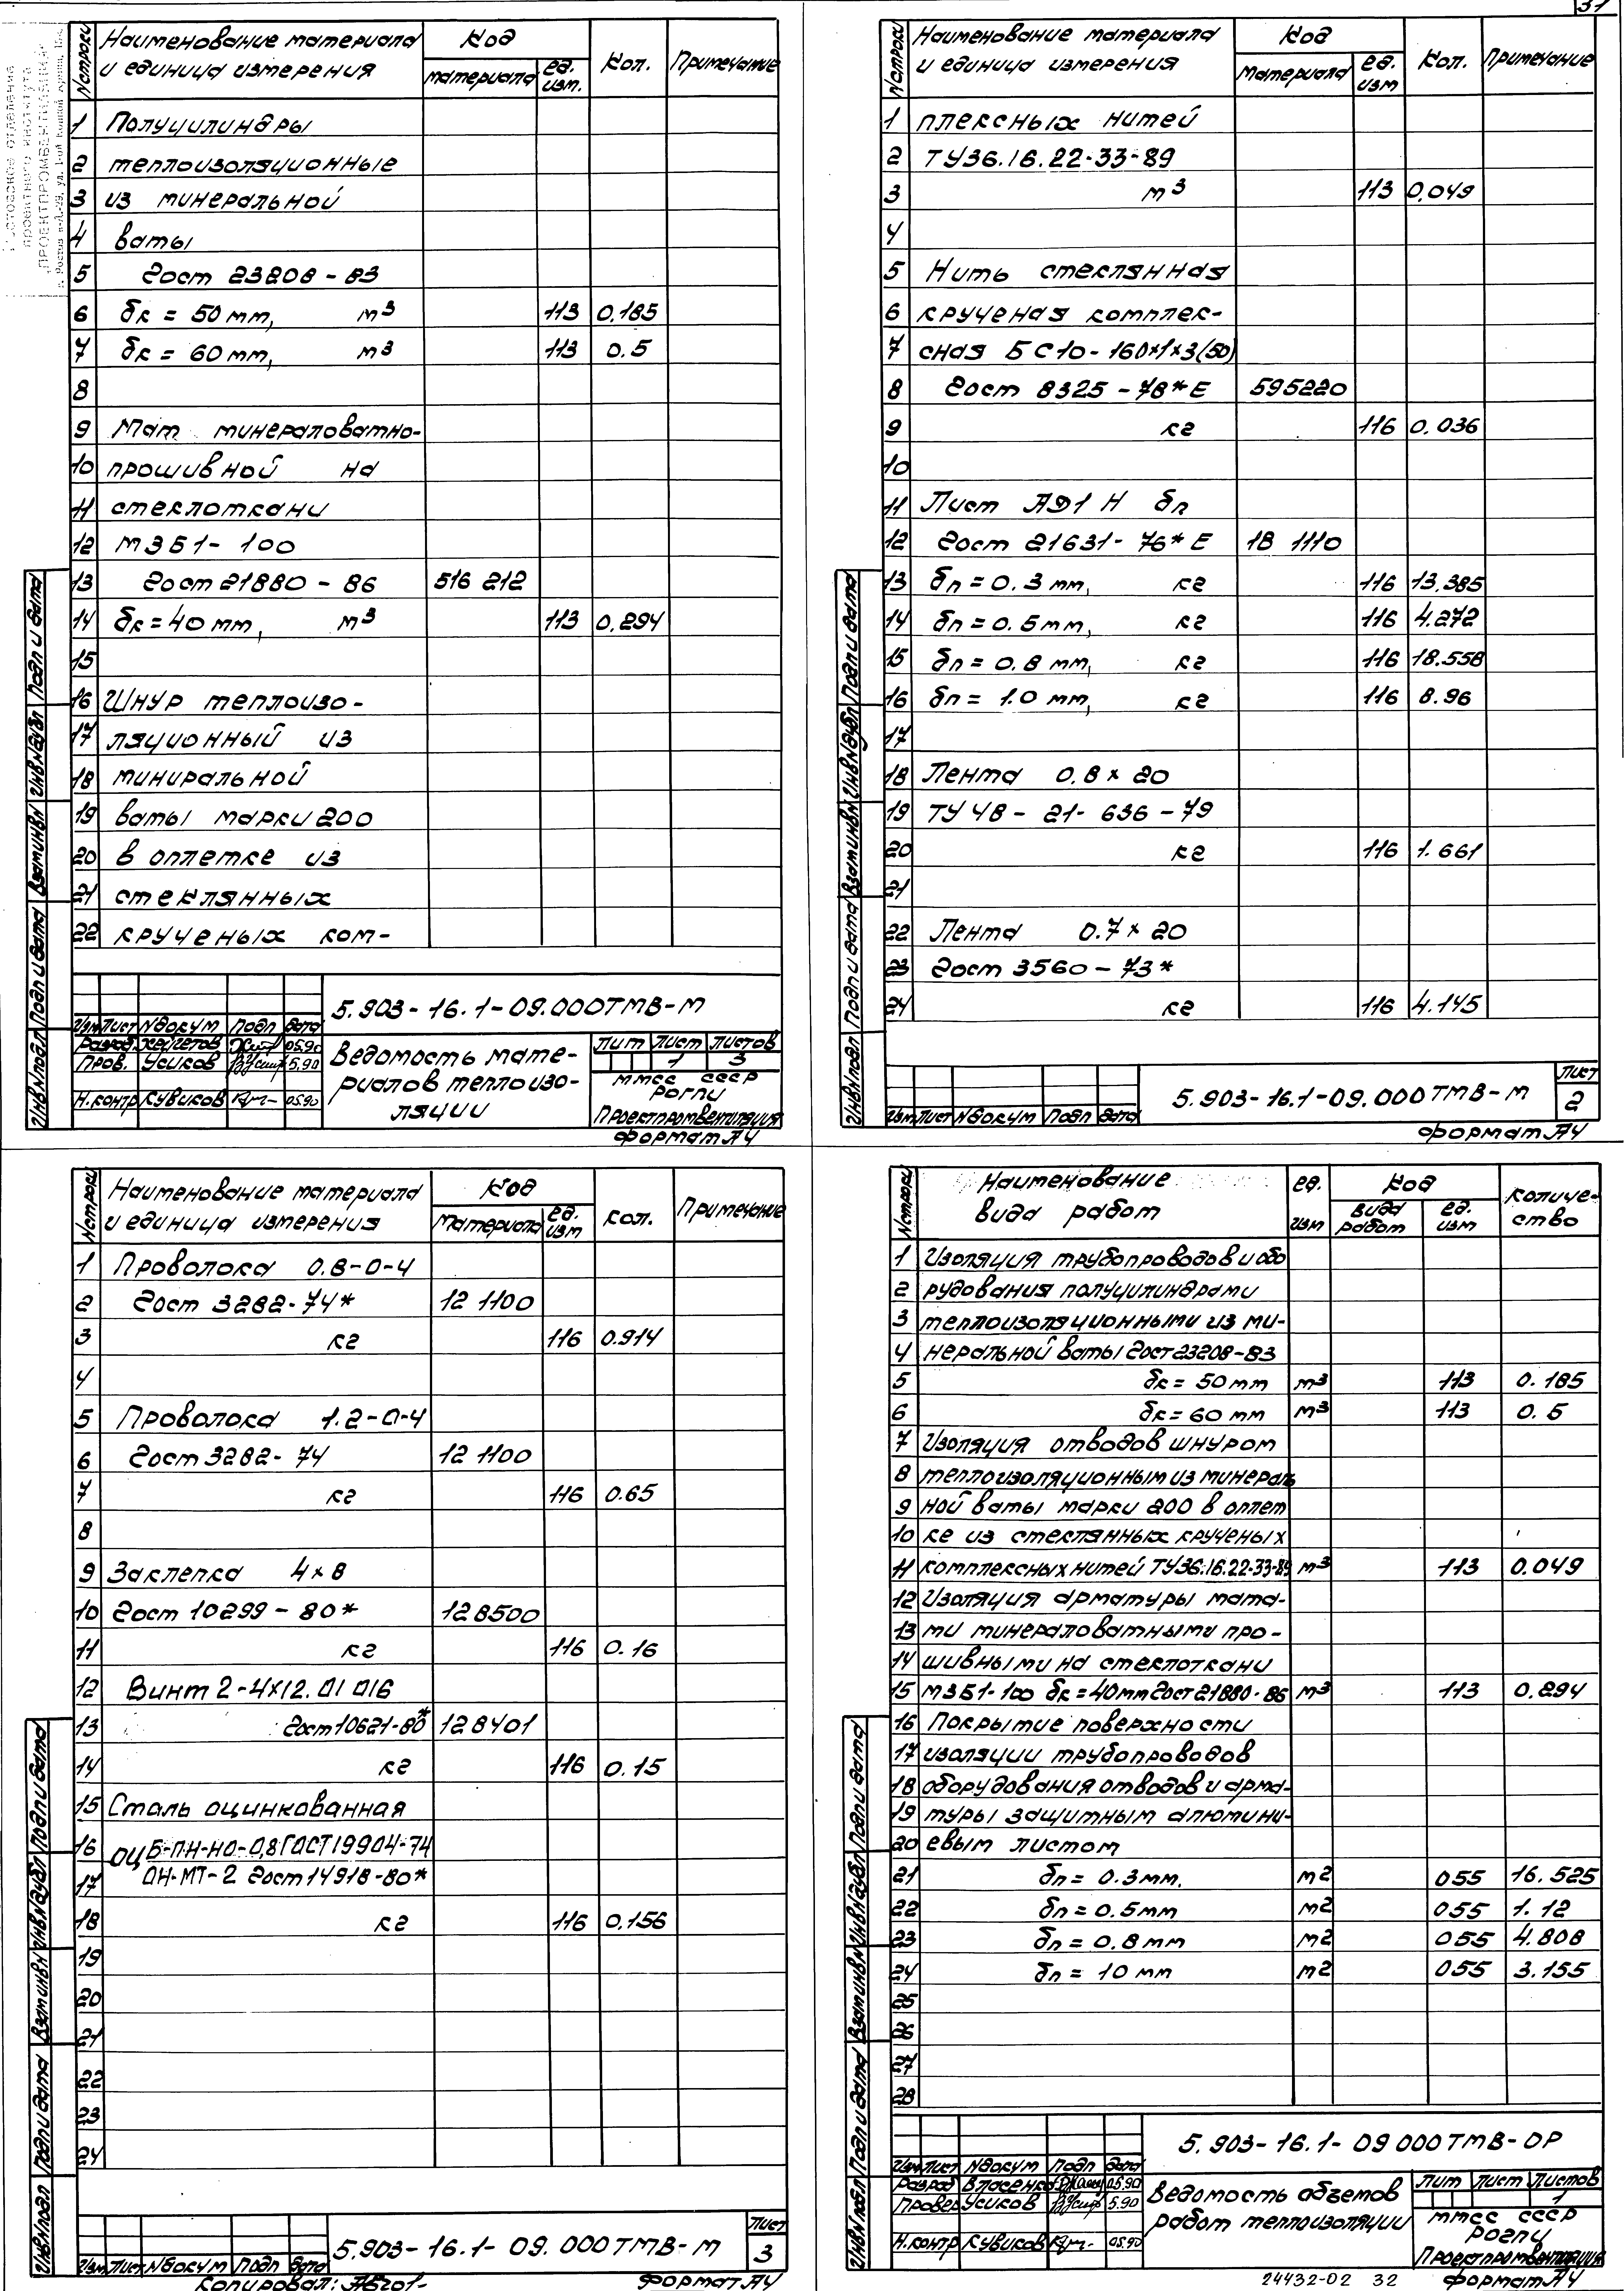 31
№строки Наименование материала и единица измерения Код Кол. Примечание
материала ед. изм.
1 Полуцилиндры
2 теплоизоляционные
3 из минеральной
4 ваты
5 Гост 23208-83
6 δк = 50 мм, м³ 113 0.185
7 δк = 60 мм, м³ 113 0.5
8
9 Мат минераловатно-
10 прошивной на
11 стеклоткани
12 МЗБ1-100
13 Гост 21880-86 516 212
14 δк = 40 мм, м³ 113 0.294
15
16 Шнур теплоизо-
17 ляционный из
18 миниральной
19 ваты марки 200
20 в оплетке из
21 стеклянных
22 крученых ком-
5.903-16.1-09.000ТМВ-М
Изм Лист №докум Подп Дата
Разраб. 05.90
Пров. Усиков 5.90
Н.контр Кувиков 05.90
Ведомость мате-
риалов теплоизо-
ляции
Лит Лист Листов
1 3
ММСС СССР
РОГПИ
Проектпромвентиляция
Формат А4
Инв№подл Подп и дата Взам инв№ Инв№дубл Подп и дата
№строки Наименование материала и единица измерения Код Кол. Примечание
материала ед. изм
1 плексных нитей
2 ТУ36.16.22-33-89
3 м³ 113 0.049
4
5 Нить стеклянная
6 крученая комплек-
7 сная БС10-160х1х3(50)
8 Гост 8325-78*Е 595220
9 кг 116 0.036
10
11 Лист АД1 Н δп
12 Гост 21631-76*Е 18 1110
13 δп = 0.3 мм, кг 116 13.385
14 δп = 0.5 мм, кг 116 4.272
15 δп = 0.8 мм, кг 116 18.558
16 δп = 1.0 мм, кг 116 8.96
17
18 Лента 0.8 х 20
19 ТУ 48-21-636-79
20 кг 116 1.661
21
22 Лента 0.7 х 20
23 Гост 3560-73*
24 кг 116 4.145
Изм Лист №докум Подп Дата
5.903-16.1-09.000ТМВ-М
Лист
2
Формат А4
Инв№подл Подп и дата Взам инв№ Инв№дубл Подп и дата
№строки Наименование материала и единица измерения Код Кол. Примечание
материала ед. изм
1 Проволока 0.8-0-4
2 Гост 3282-74* 12 1100
3 кг 116 0.914
4
5 Проволока 1.2-0-4
6 Гост 3282-74 12 1100
7 кг 116 0.65
8
9 Заклепка 4х8
10 Гост 10299-80* 128500
11 кг 116 0.16
12 Винт 2-4х12.01 016
13 Гост 10621-80* 128401
14 кг 116 0.15
15 Сталь оцинкованная
16 ОЦ Б-ПН-НО-0,8 ГОСТ 19904-74
17 ОН-МТ-2 Гост 14918-80*
18 кг 116 0.156
19
20
21
22
23
24
Изм Лист №докум Подп Дата
5.903-16.1-09.000ТМВ-М
Лист
3
Копировал:
Формат А4
Инв№подл Подп и дата Взам инв№ Инв№дубл Подп и дата
№строки Наименование вида работ ед. изм Код Количе-ство
вида работ ед. изм
1 Изоляция трубопроводов и обо
2 рудования полуцилиндрами
3 теплоизоляционными из ми-
4 неральной ваты Гост 23208-83
5 δк = 50 мм м³ 113 0.185
6 δк = 60 мм м³ 113 0.5
7 Изоляция отводов шнуром
8 теплоизоляционным из минераль
9 ной ваты марки 200 в оплет
10 ке из стеклянных крученых
11 комплексных нитей ТУ36.16.22-33-89 м³ 113 0.049
12 Изоляция арматуры мата-
13 ми минераловатными про-
14 шивными на стеклоткани
15 МЗБ1-100 δк = 40мм Гост 21880-86 м³ 113 0.294
16 Покрытие поверхности
17 изоляции трубопроводов
18 оборудования отводов и арма-
19 туры защитным алюмини-
20 евым листом
21 δп = 0.3 мм. м2 055 16.525
22 δп = 0.5 мм м2 055 1.12
23 δп = 0.8 мм м2 055 4.808
24 δп = 10 мм м2 055 3.155
25
26
27
28
5.903-16.1-09 000ТМВ-ОР
Изм Лист №докум Подп Дата
Разраб Власенко 05.90
Провер Усиков 5.90
Н.контр Кувиков 05.90
Ведомость обземов
работ теплоизоляции
Лит Лист Листов
1
ММСС СССР
РОГПИ
Проектпромвентиляция
24432-02 32
Формат А4
Инв№подл Подп и дата Взам инв№ Инв№дубл Подп и дата